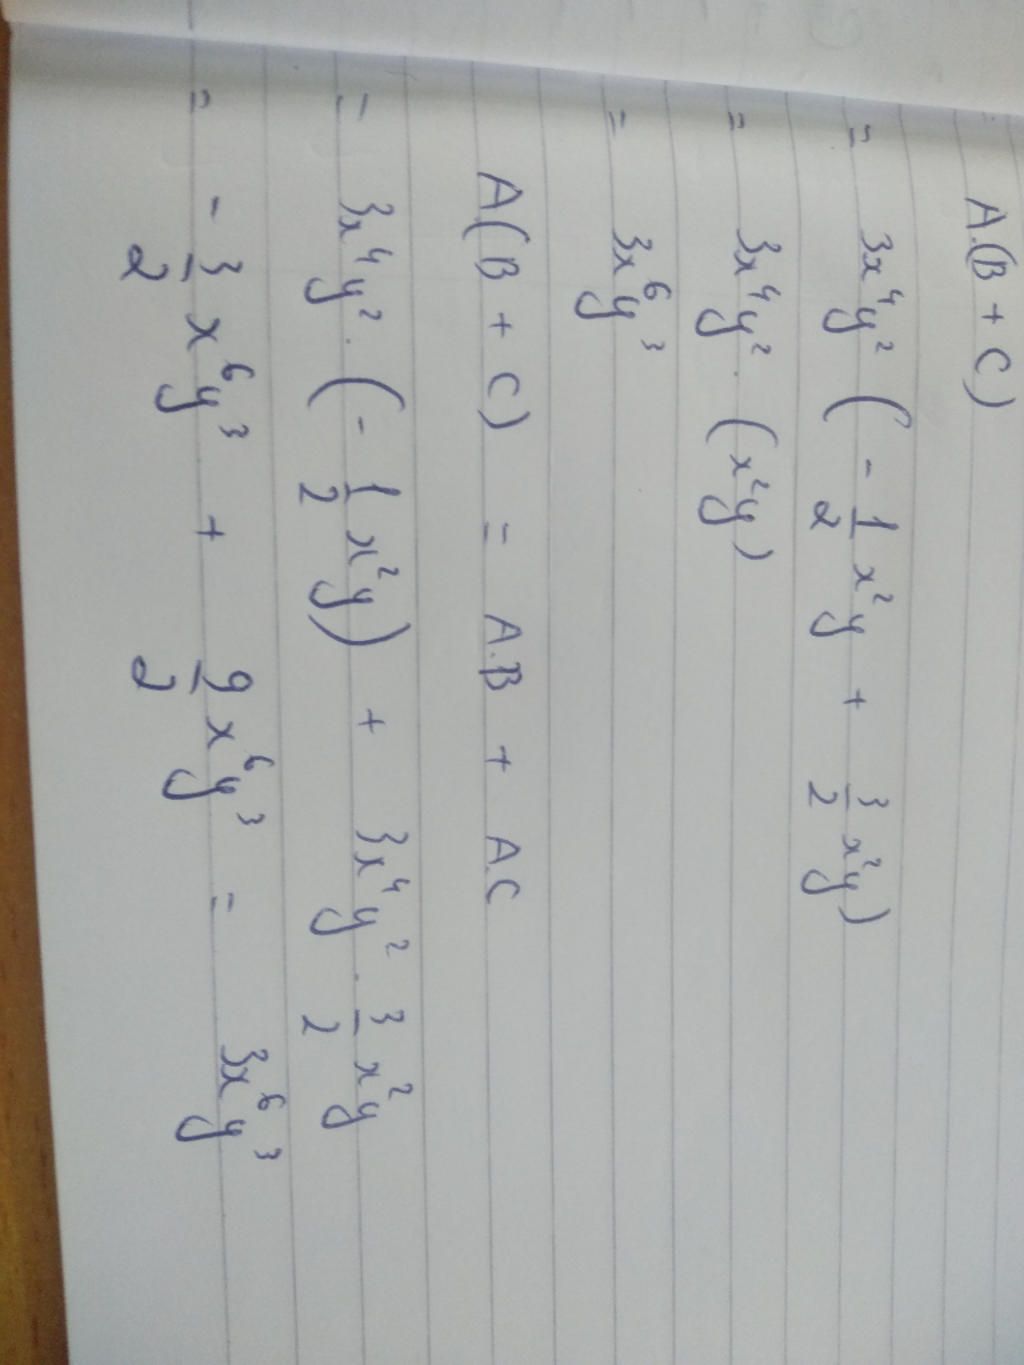 A.(B + C)
= 3x⁴y² (-1/2 x²y + 3/2 x²y)
= 3x⁴y² . (x²y)
= 3x⁶y³
A(B + C) = A.B + A.C
= 3x⁴y² . (-1/2 x²y) + 3x⁴y² . 3/2 x²y
= -3/2 x⁶y³ + 9/2 x⁶y³ = 3x⁶y³